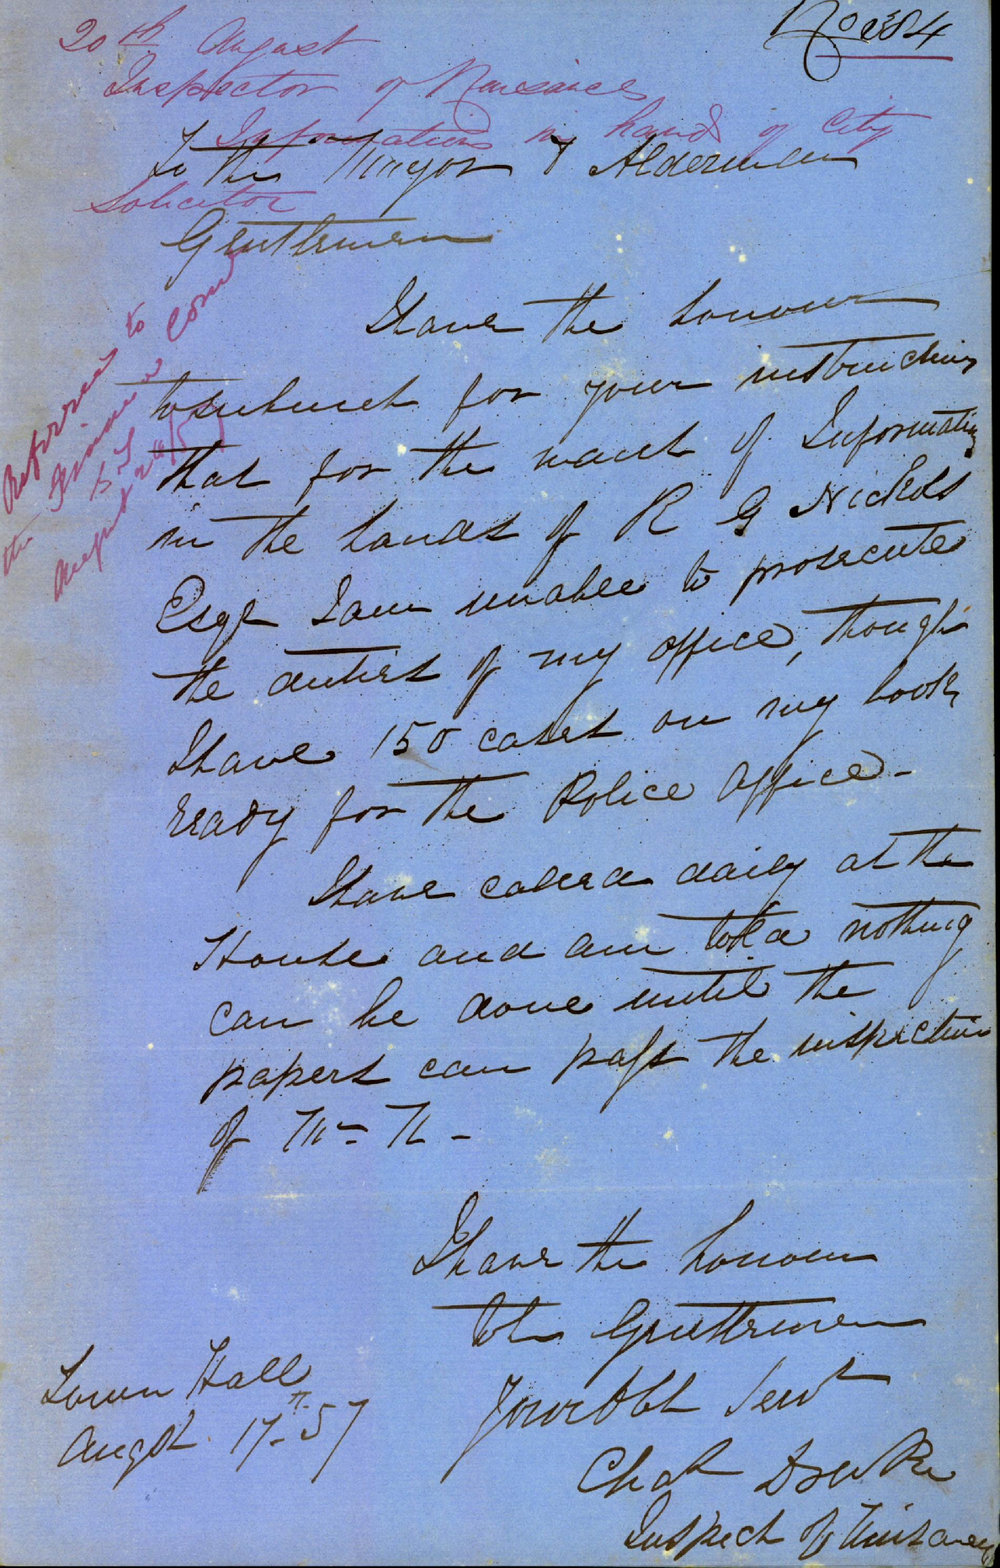 No 384
20th August
Inspector of Nuisances
Informations in hand of City
Solicitor
To the Mayor & Aldermen
Gentlemen
I have the honour
to submit for your instructions
that for the want of Information
in the hands of R G Nichols
Esqr I am unable to prosecute
the duties of my office, though
I have 150 cases on my book
ready for the Police Office -
I have called daily at the
House and am told nothing
can be done until the
papers can pass the inspection
of Mr N -
I have the honour
to be Gentlemen
Your Obt Servt
Chas Drake
Inspect of Nuisances
Town Hall
Augst 17th 57
Referred to
the Finance Come
August 57